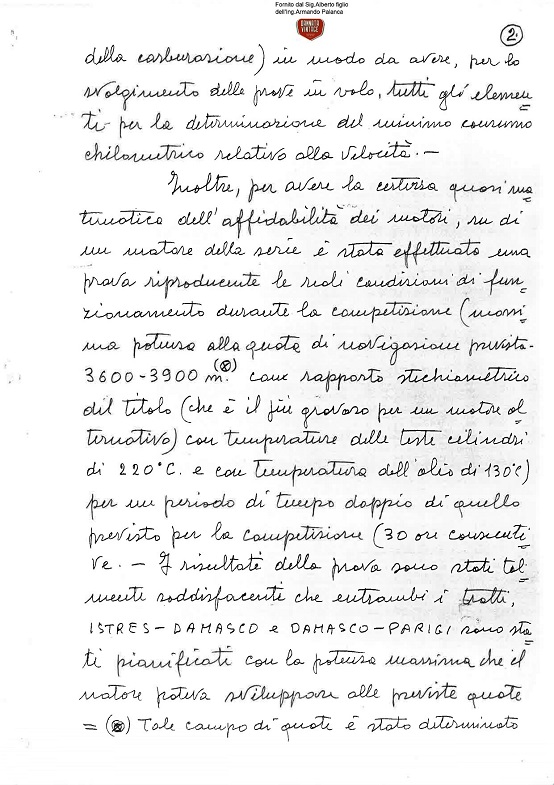 Fornito dal Sig.Alberto figlio
dell'Ing.Armando Palanca
DONNATA
VINTAGE
2.
della carburazione) in modo da avere, per lo
svolgimento delle prove in volo, tutti gli elemen=
ti per la determinazione del minimo consumo
chilometrico relativo alla velocità. —
Inoltre, per avere la certezza quasi ma
tematica dell'affidabilità dei motori, su di
un motore della serie è stata effettuata una
prova riproducente le reali condizioni di fun=
zionamento durante la competizione (massi=
ma potenza alla quota di navigazione prevista-
3600-3900 m.(⊗) con rapporto stechiometrico
del titolo (che è il più gravoso per un motore al=
ternativo) con temperature delle teste cilindri
di 220°C. e con temperatura dell'olio di 130°C)
per un periodo di tempo doppio di quello
previsto per la competizione (30 ore consecuti=
ve. — I risultati della prova sono stati tal=
mente soddisfacente che entrambi i tratti,
ISTRES-DAMASCO e DAMASCO-PARIGI sono sta=
ti pianificati con la potenza massima che il
motore poteva sviluppare alle previste quote
= (⊗) Tale campo di quote è stato determinato